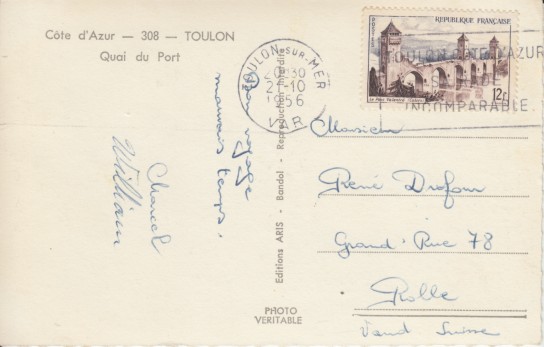 Côte d'Azur — 308 — TOULON
Quai du Port
Bon voyage
mauvais temps.
William
PHOTO
VERITABLE
Editions ARIS - Bandol - Reproduction Interdite
TOULON-SUR-MER
20H30
21-10
1956
VAR
POSTES
REPUBLIQUE FRANÇAISE
12F
TOULON CÔTE D'AZUR
INCOMPARABLE.
Monsieur
René
Grand-Rue 78
Rolle
Vaud Suisse